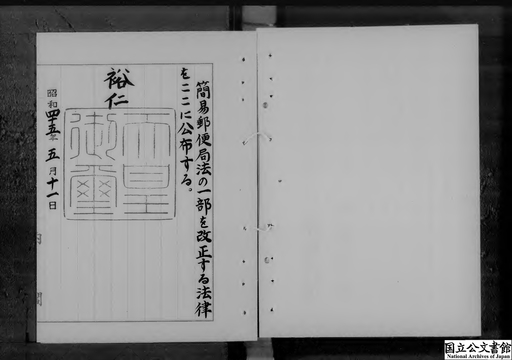 簡易郵便局法の一部を改正する法律
をここに公布する。
裕仁
天皇
御璽
昭和四十五年五月十一日
国立公文書館
National Archives of Japan